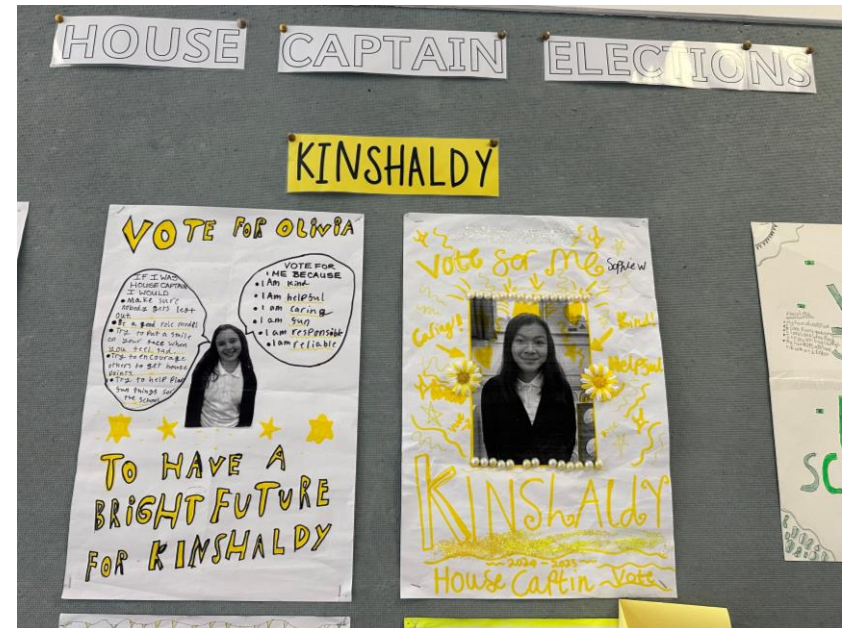 HOUSE CAPTAIN ELECTIONS
KINSHALDY
VOTE FOR OLIVIA
IF I WAS
HOUSE CAPTAIN
I WOULD
• Make sure
nobody gets left
out
• Be a good role model
• Try to put a smile
on your face when
you feel sad
• Try to encourage
others to get house
points
• Try to help plan
fun things for
the school
VOTE FOR
ME BECAUSE
• I Am kind
• I Am helpful
• I am caring
• I am fun
• I am responsible
• I am reliable
TO HAVE A
BRIGHT FUTURE
FOR KINSHALDY
Vote for me Sophie W
Caring!
Kind!
Helpful
KINShAldY
2024 - 2025
House Captin Vote
SC